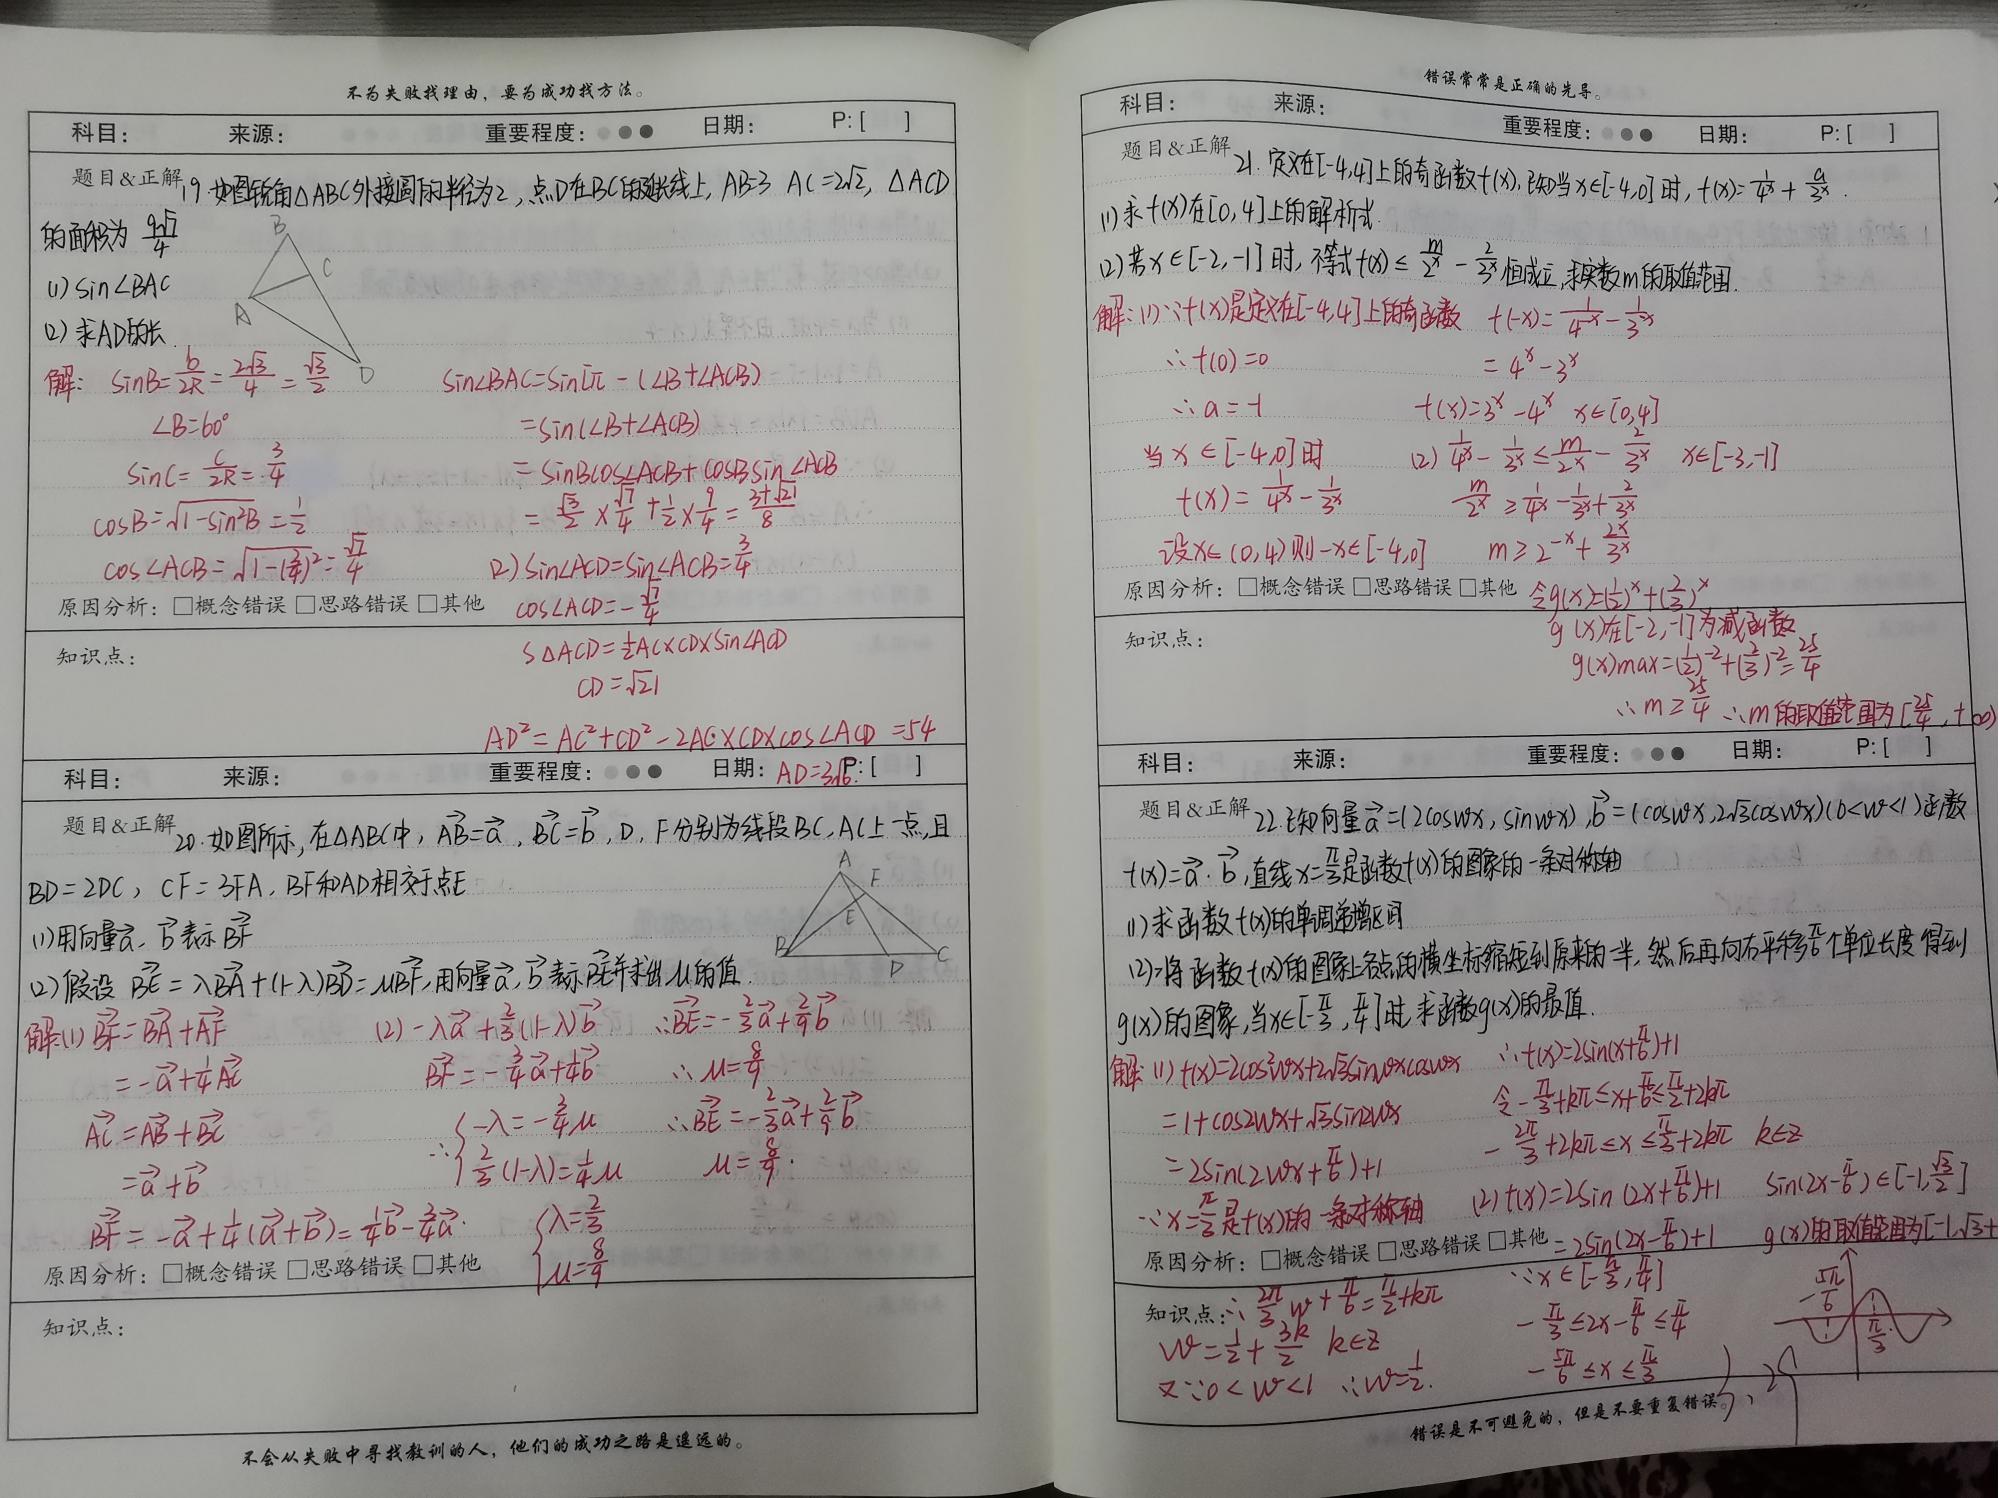 不为失败找理由，要为成功找方法。
科目： 来源： 重要程度： 日期： P:[ ]
题目&正解 19.如图锐角△ABC外接圆的半径为2，点D在BC的延长线上，AB=3 AC=2√2，△ACD
的面积为 9√7/4
(1) sin∠BAC
(2) 求AD的长
B
C
A
D
解： sinB=b/2R=2√3/4=√3/2
∠B=60°
sinC=c/2R=3/4
cosB=√(1-sin²B)=1/2
cos∠ACB=√(1-(3/4)²)=√7/4
sin∠BAC=sin[π-(∠B+∠ACB)
=sin(∠B+∠ACB)
=sinBcos∠ACB+cosBsin∠ACB
=√3/2×√7/4+1/2×9/4=(3+√21)/8
(2) sin∠ACD=sin∠ACB=3/4
cos∠ACD=-√7/4
S△ACD=1/2AC×CD×sin∠ACD
CD=√21
AD²=AC²+CD²-2AC×CD×cos∠ACD=54
AD=3√6.
原因分析：□概念错误 □思路错误 □其他
知识点：
科目： 来源： 重要程度： 日期： P:[ ]
题目&正解 20.如图所示，在△ABC中，AB→=a→，BC→=b→，D，F分别为线段BC，AC上一点，且
BD=2DC，CF=3FA，BF和AD相交于点E
(1)用向量a→，b→表示BF→
(2)假设BE→=λBA→+(1-λ)BD→=μBF→，用向量a→，b→表示BE→并求出μ的值.
A
F
E
B
D
C
解：(1) BF→=BA→+AF→
=-a→+1/4AC→
AC→=AB→+BC→
=a→+b→
BF→=-a→+1/4(a→+b→)=1/4b→-3/4a→.
(2) -λa→+2/3(1-λ)b→
BF→=-3/4a→+1/4b→
∴{-λ=-3/4μ
2/3(1-λ)=1/4μ
{λ=2/3
μ=8/9
∴BE→=-2/3a→+2/9b→
∴μ=8/9
∴BE→=-2/3a→+2/9b→
μ=8/9.
原因分析：□概念错误 □思路错误 □其他
知识点：
不会从失败中寻找教训的人，他们的成功之路是遥远的。
错误常常是正确的先导。
科目： 来源： 重要程度： 日期： P:[ ]
题目&正解 21.定义在[-4,4]上的奇函数f(x)，已知当x∈[-4,0]时，f(x)=1/4^x+a/3^x.
(1)求f(x)在[0,4]上的解析式.
(2)若x∈[-2,-1]时，不等式f(x)≤m/2^x-2/3^x恒成立，求实数m的取值范围.
解：(1)∵f(x)是定义在[-4,4]上的奇函数
∴f(0)=0
∴a=-1
当x∈[-4,0]时
f(x)=1/4^x-1/3^x
设x∈(0,4)则-x∈[-4,0]
f(-x)=1/4^-x-1/3^-x
=4^x-3^x
f(x)=3^x-4^x x∈[0,4]
(2) 1/4^x-1/3^x≤m/2^x-2/3^x x∈[-3,-1]
m/2^x≥1/4^x-1/3^x+2/3^x
m≥2^-x+2^x/3^x
令g(x)=(1/2)^x+(2/3)^x
g(x)在[-2,-1]为减函数
g(x)max=(1/2)^-2+(2/3)^-2=25/4
∴m≥25/4 ∴m的取值范围为[25/4,+∞)
原因分析：□概念错误 □思路错误 □其他
知识点：
科目： 来源： 重要程度： 日期： P:[ ]
题目&正解 22.已知向量a→=(2coswx,sinwx)，b→=(coswx,2√3coswx)(0<w<1)函数
f(x)=a→·b→，直线x=π/3是函数f(x)的图象的一条对称轴
(1)求函数f(x)的单调递增区间
(2)将函数f(x)的图象上各点的横坐标缩短到原来的一半，然后再向右平移π/6个单位长度得到
g(x)的图象，当x∈[-π/3,π/4]时，求函数g(x)的最值.
解：(1) f(x)=2cos²wx+2√3sinwxcoswx
=1+cos2wx+√3sin2wx
=2sin(2wx+π/6)+1
∵x=π/3是f(x)的一条对称轴
原因分析：□概念错误 □思路错误 □其他
知识点：∴2π/3w+π/6=π/2+kπ
w=1/2+3k/2 k∈z
又∵0<w<1 ∴w=1/2.
∴f(x)=2sin(x+π/6)+1
令-π/3+kπ≤x+π/6≤π/2+2kπ
-2π/3+2kπ≤x≤π/3+2kπ k∈z
(2) f(x)=2sin(2x+π/6)+1
=2sin(2x-π/6)+1
∵x∈[-π/3,π/4]
-π/3≤2x-π/6≤π/4
-5π/6≤x≤π/3
sin(2x-π/6)∈[-1,√3/2]
g(x)的取值范围为[-1,√3+
-5π/6
π/3
错误是不可避免的，但是不要重复错误。